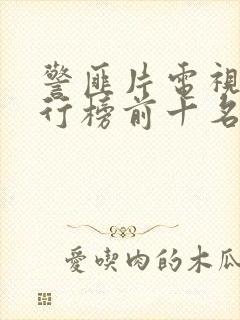 警匪片電視
行榜前十名
愛喫肉的木瓜